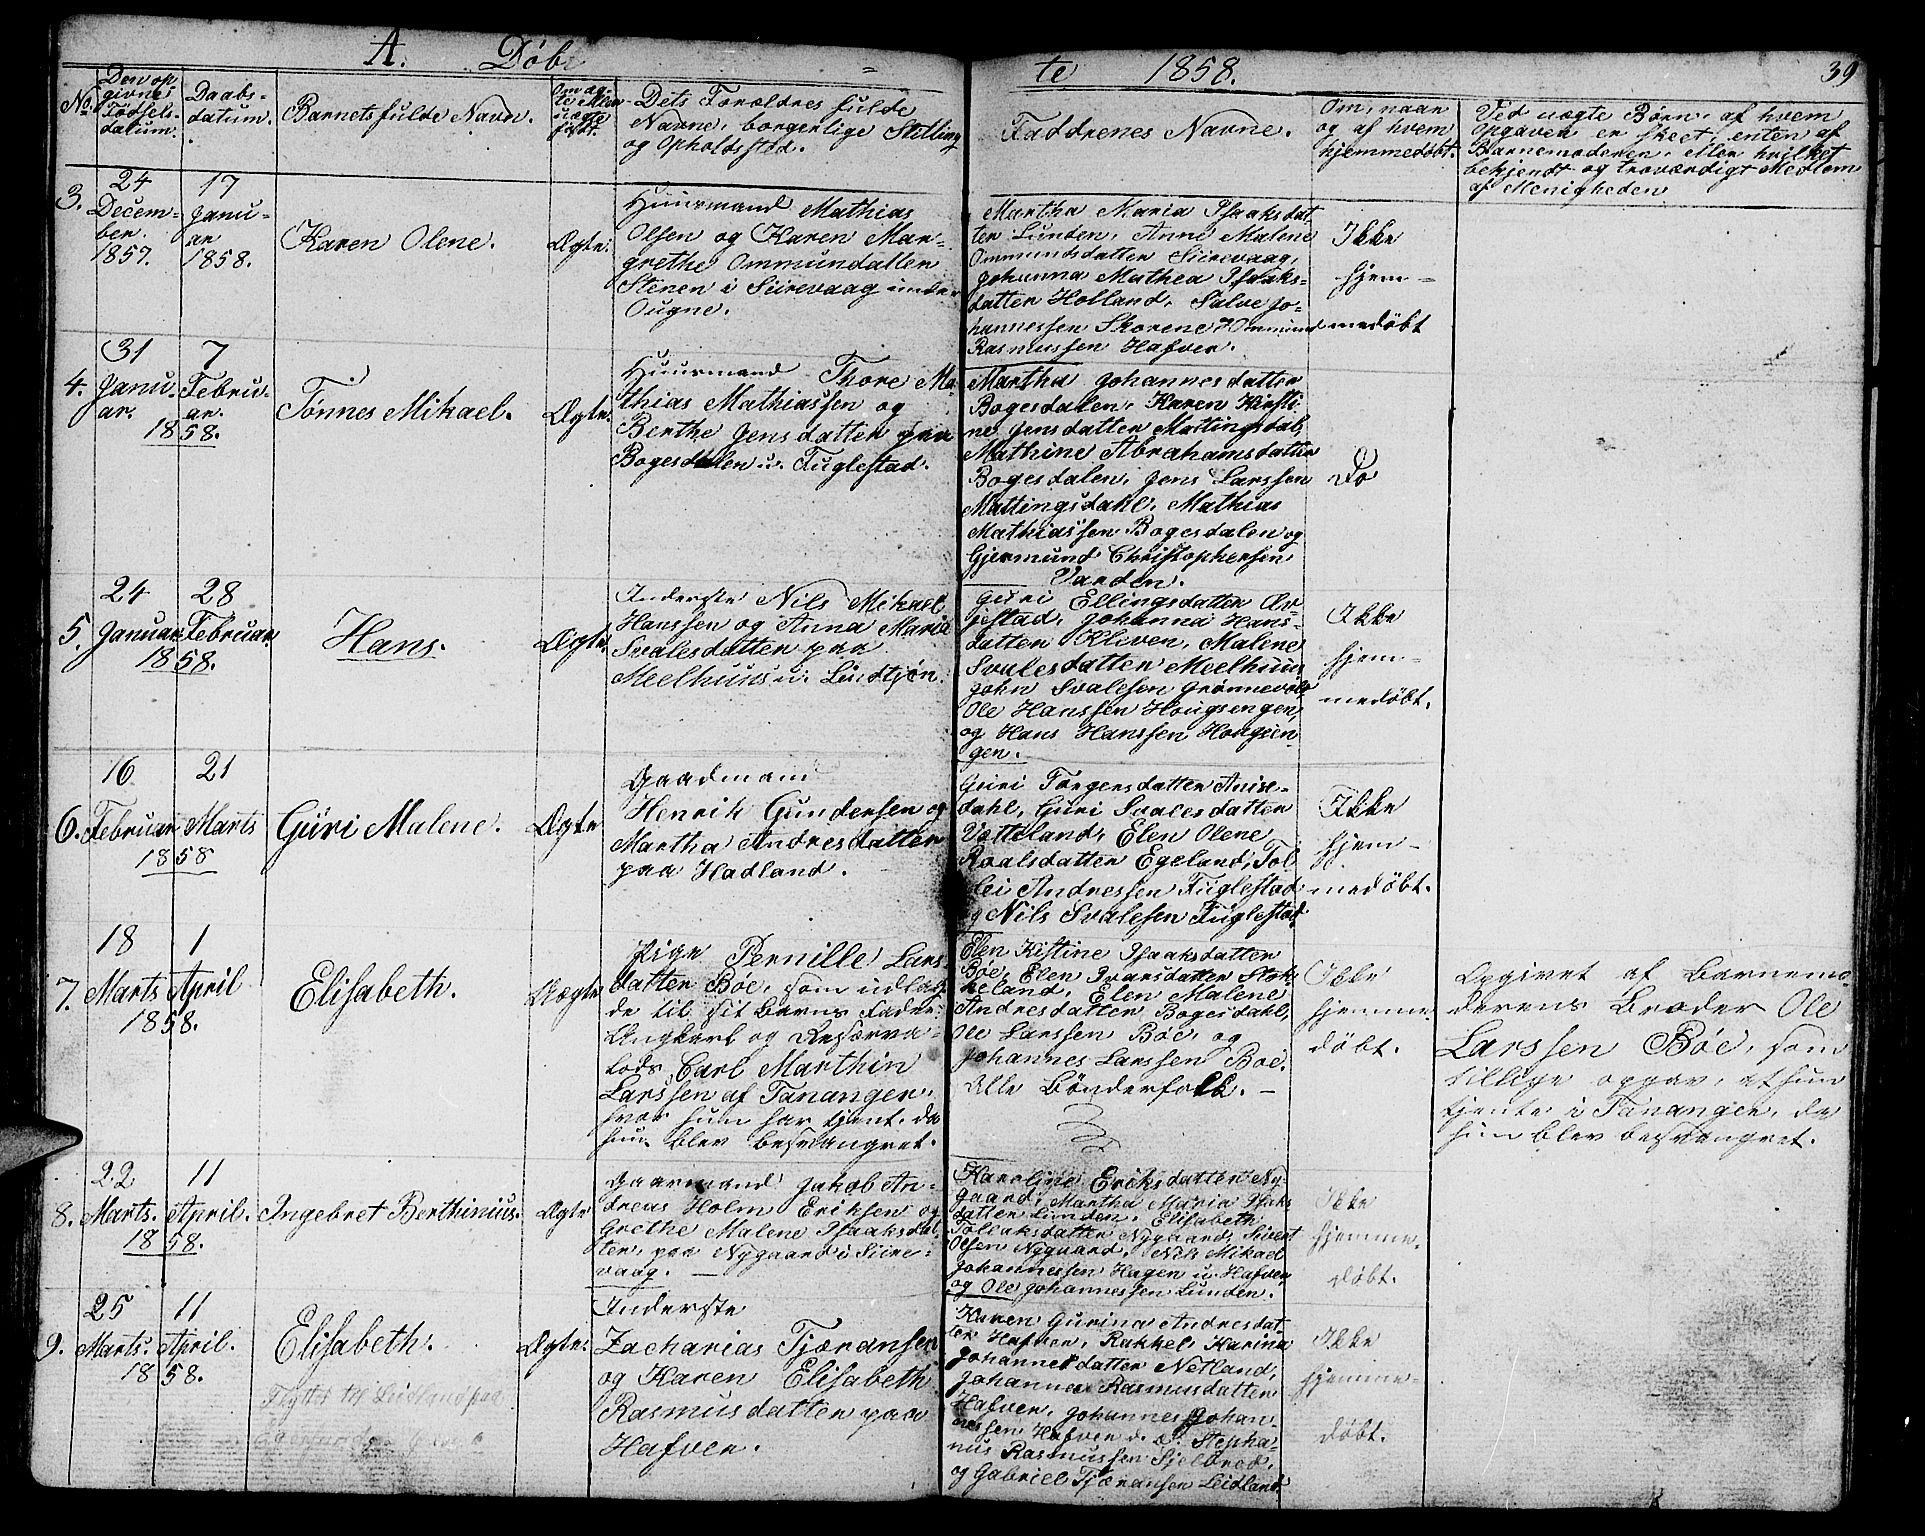 A. Døbte 1858. 39
No.
Den op-
givne
Fødsels-
datum.
Daabs-
datum.
Barnets fulde Navn.
Om æg-
te eller
uægte
født.
Dets Forældres fulde
Navne, borgerlige Stilling
og Opholdssted.
Faddrenes Navne.
Om, naar
og af hvem
hjemmedøbt.
Ved uægte Børn, af hvem
Opgaven er skeet, enten af
Barnemoderen, eller hvilket
bekjendt og troværdigt Medlem
af Menigheden
3.
24
Decem-
ber.
1857.
17
Janu-
ar
1858.
Karen Olene.
Ægte.
Huusmand Mathias
Olsen og Karen Mar-
grethe Ommundatter
Stenen i Siirevaag under
Ougne.
Martha Maria Isaaksdat-
ter Lunden, Anne Malene
Ommundsdatter Siirevaag,
Johanna Mathea Isaaks-
datter Holland, Salve Jo-
hannessen Skorene, Ommund
Rasmussen Hafven.
Ikke
hjem-
medøbt
4.
31
Janu-
ar.
7
Febru-
ar.
1858.
Tønnes Mikael.
Ægte.
Huusmand Thore Ma-
thias Mathiassen og
Berthe Jensdatter paa
Bogesdalen u. Fuglestad.
Martha Johannesdatter
Bogesdalen, Karen Kirsti-
ne Jensdatter Mattingsdal,
Mathine Abrahamsdatter
Bogesdalen, Jens Larssen
Mattingsdahl, Mathias
Mathiassen Bogesdalen og
Gjermund Christophersen
Varden.
Do
5.
24
Januar
28
Februar.
1858.
Hans.
Ægte.
Inderste Nils Mikael
Hanssen og Anna Maria
Svalesdatter paa
Meelhuus u. Leidtjøn.
Guri Ellingsdatter Av-
jestad, Johanna Hans-
datter Kliven, Malene
Svalesdatter Meelhuus
John Svalesen Grønnevold
Ole Hanssen Hougsengen,
og Hans Hanssen Hougsen-
gen.
Ikke
hjem-
medøbt.
6.
16
Februar
21
Marts
1858
Guri Malene.
Ægte
Gaadmand
Henrik Gundersen og
Martha Andresdatter
paa Hadland.
Guri Torgersdatter Anise-
dahl, Guri Svalesdatter
Vatteland, Elen Olene
Roalsdatter Egeland, Tol-
lei Andressen Fuglestad
og Nils Svalesen Fuglestad
Ikke
hjem-
medøbt.
7.
18
Marts
1
April
1858.
Elisabeth.
Uægte
Pige Pernille Lars
datter Bøe, som udlag-
de til sit Barns Fader
Ungkarl og Reserva-
lods Carl Marthin
Larssen af Tananger,
hvor hun har tjent, da
hun blev besvangret.
Elen Kistine Isaaksdatter
Bøe, Elen Ivarsdatter Stok-
keland, Elen Malene
Andresdatter Bogesdahl,
Ole Larssen Bøe, og
Johannes Larssen Bøe.
Alle Bønderfolk. -
Ikke
hjemme-
døbt.
Opgivet af Barnemo-
derens Broder Ole
Larssen Bøe, som
tillige opgav, at hun
tjente i Tananger, da
hun blev besvangret.
8.
22
Marts.
11
April.
1858.
Ingebret Berthinius.
Ægte
Gaarmand Jakob An-
dreas Holm Eriksen og
Grethe Malene Isaaksdat-
ter, paa Nygaard i Siire-
vaag. -
Karoline Eriksdatter Ny-
gaard, Martha Maria Isaks
datter Lunden, Elisabeth
Tollaksdatter Nygaard, Sivert
Olsen Nygaard, Nils Mikael
Johannessen Hagen u. Hafven
og Ole Johannessen Lunden.
Ikke
hjemme-
døbt.
9.
25
Marts.
11
April.
1858.
Elisabeth.
Flyttet til Leidland paa
Egersund
Ægte.
Inderste
Zacharias Tjæransen
og Karen Elisabeth
Rasmusdatter paa
Hafven.
Karen Gurina Andresdat-
ter Hafven, Rakkel Karina
Johannesdatter Netland,
Johanna Rasmusdatter
Hafven, Johannes Johan-
nessen Hafven Stepha-
nus Rasmussen Sjelbred,
og Gabriel Tjæransen Leidland
Ikke
hjemme-
døbt.